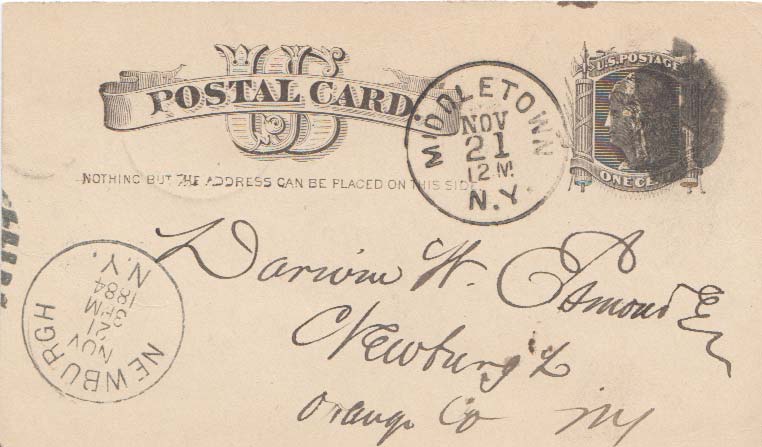 U.S. POSTAGE
US
POSTAL CARD
ONE CENT
NOTHING BUT THE ADDRESS CAN BE PLACED ON THIS SIDE
MIDDLETOWN
NOV
21
12 M.
N.Y.
Darwin W. Esmond Esq
Newburgh
Orange Co NY
NEWBURGH
NOV
21
3PM
1884
N.Y.